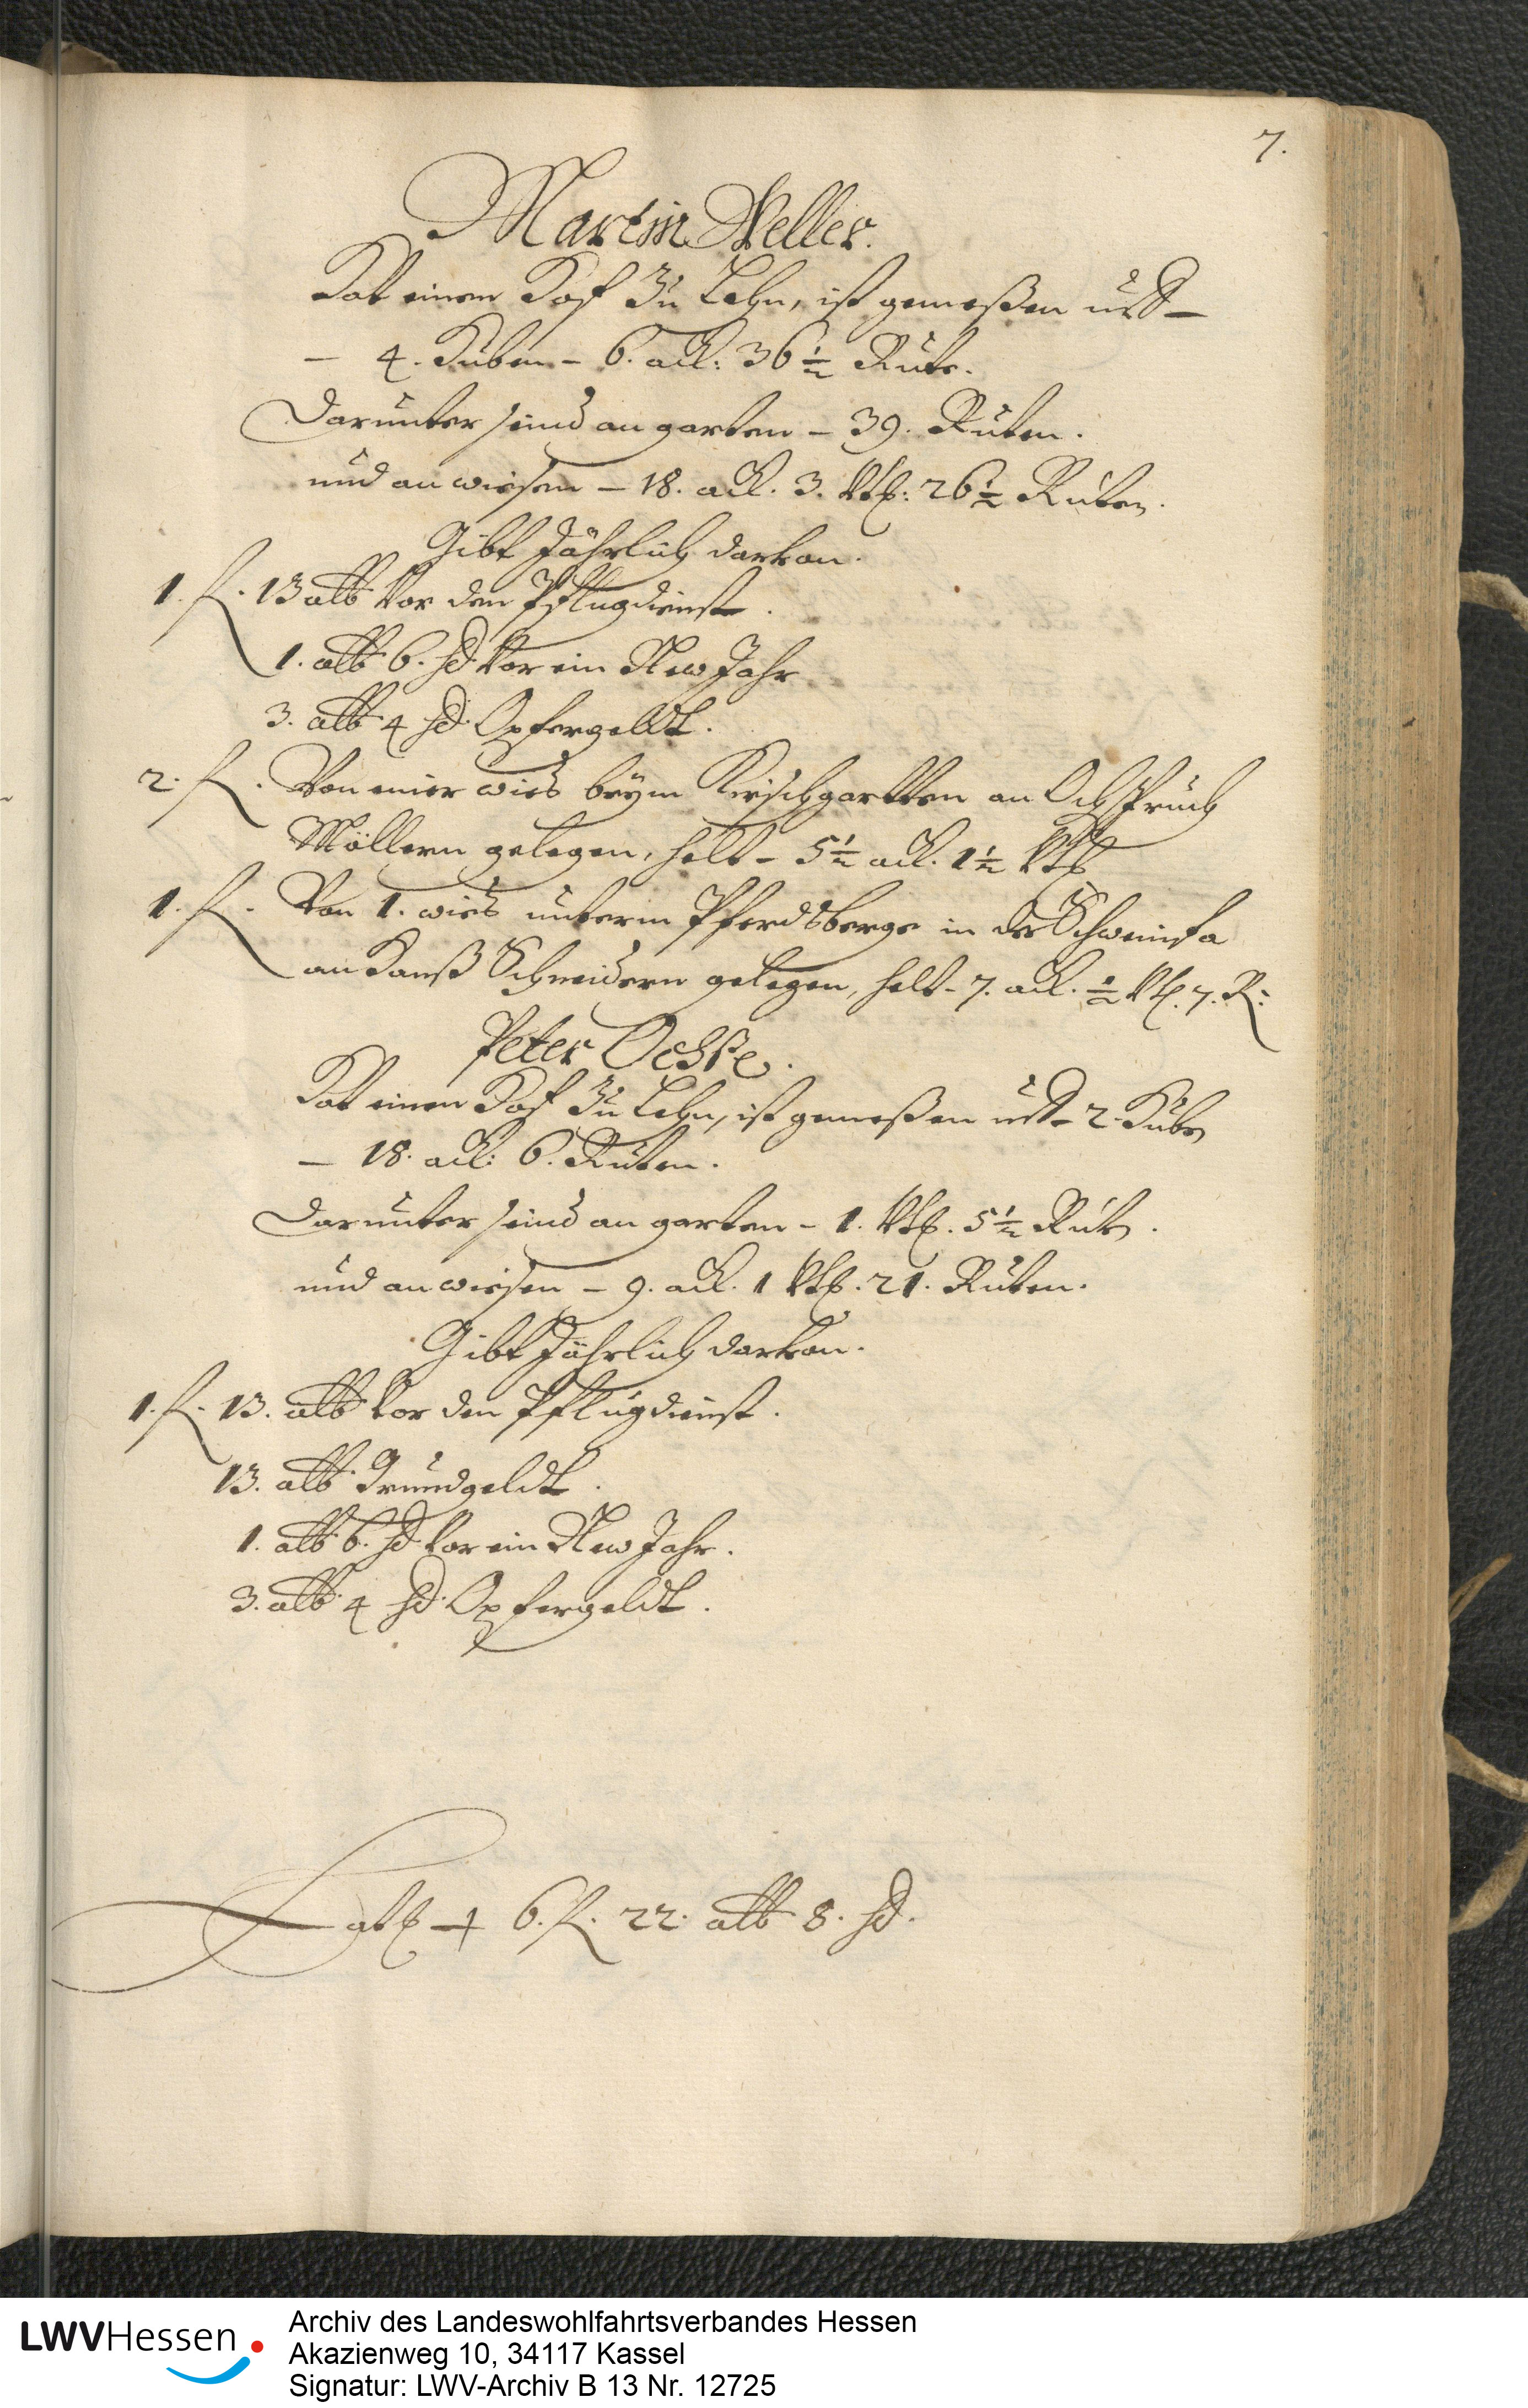 7.
Martin Weller.
Hat einen Hof Zu Lehn, ist gemeßen uff
– 4. Huben – 6. ack: 36 ½ Rute.
Darunter seind an garten – 39. Ruten.
und an wiesen – 18. ack. 3. Vtl: 26 ½ Ruten.
Gibt Jährlich darvon.
1. fl. 13 alb Vor den Pflugdienst.
1. alb 6. hl Vor ein New Jahr
3. alb 4 hl Opfergeldt.
2. fl. Von einer wies beym Kirschgartten an
Möllern gelegen, helt – 5 ½ ack. 1 ½ Vtl
1. fl. Von 1. wies unterm Pferdsberge in der
an Hanß Schneidern gelegen, helt – 7. ack. ½ Vtl. 7. R:
Peter Ochße.
Hat einen Hof Zu Lehn, ist gemeßen uff 2 Huben
– 18. ack: 6. Ruten.
Darunter seind an garten – 1. Vtl. 5 ½ Ruten.
und an wiesen – 9. ack. 1 Vtl. 21. Ruten.
Gibt Jährlich darvon.
1. fl. 13. alb Vor den Pflugdienst.
13. alb Grundgeldt.
1. alb 6. hl Vor ein New Jahr.
3. alb 4 hl Opfergeldt.
Latl 6. fl. 22. alb 8. hl.
LWVHessen
Archiv des Landeswohlfahrtsverbandes Hessen
Akazienweg 10, 34117 Kassel
Signatur: LWV-Archiv B 13 Nr. 12725